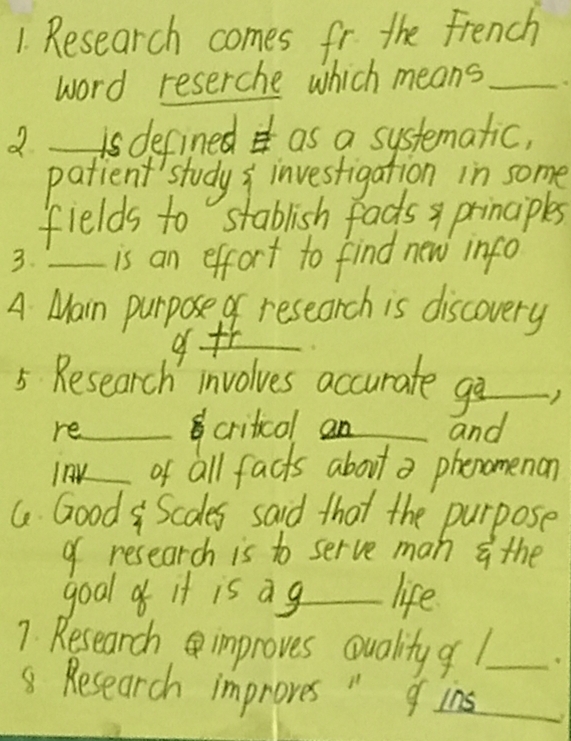 1. Research comes fr. the French
word reserche which means ___.
2 ___is defined as a systematic,
patient study & investigation in some
fields to stablish facts & principles
3. ___ is an effort to find new info
4 Main purpose of research is discovery
of tr___.
5 Research involves accurate ga___,
re___ & critical an___ and
inv___ of all facts about a phenomenon
6. Good & Scales said that the purpose
of research is to serve man & the
goal of it is a g___ life.
7. Research improves Quality of l___.
8 Research improves " of ins___.